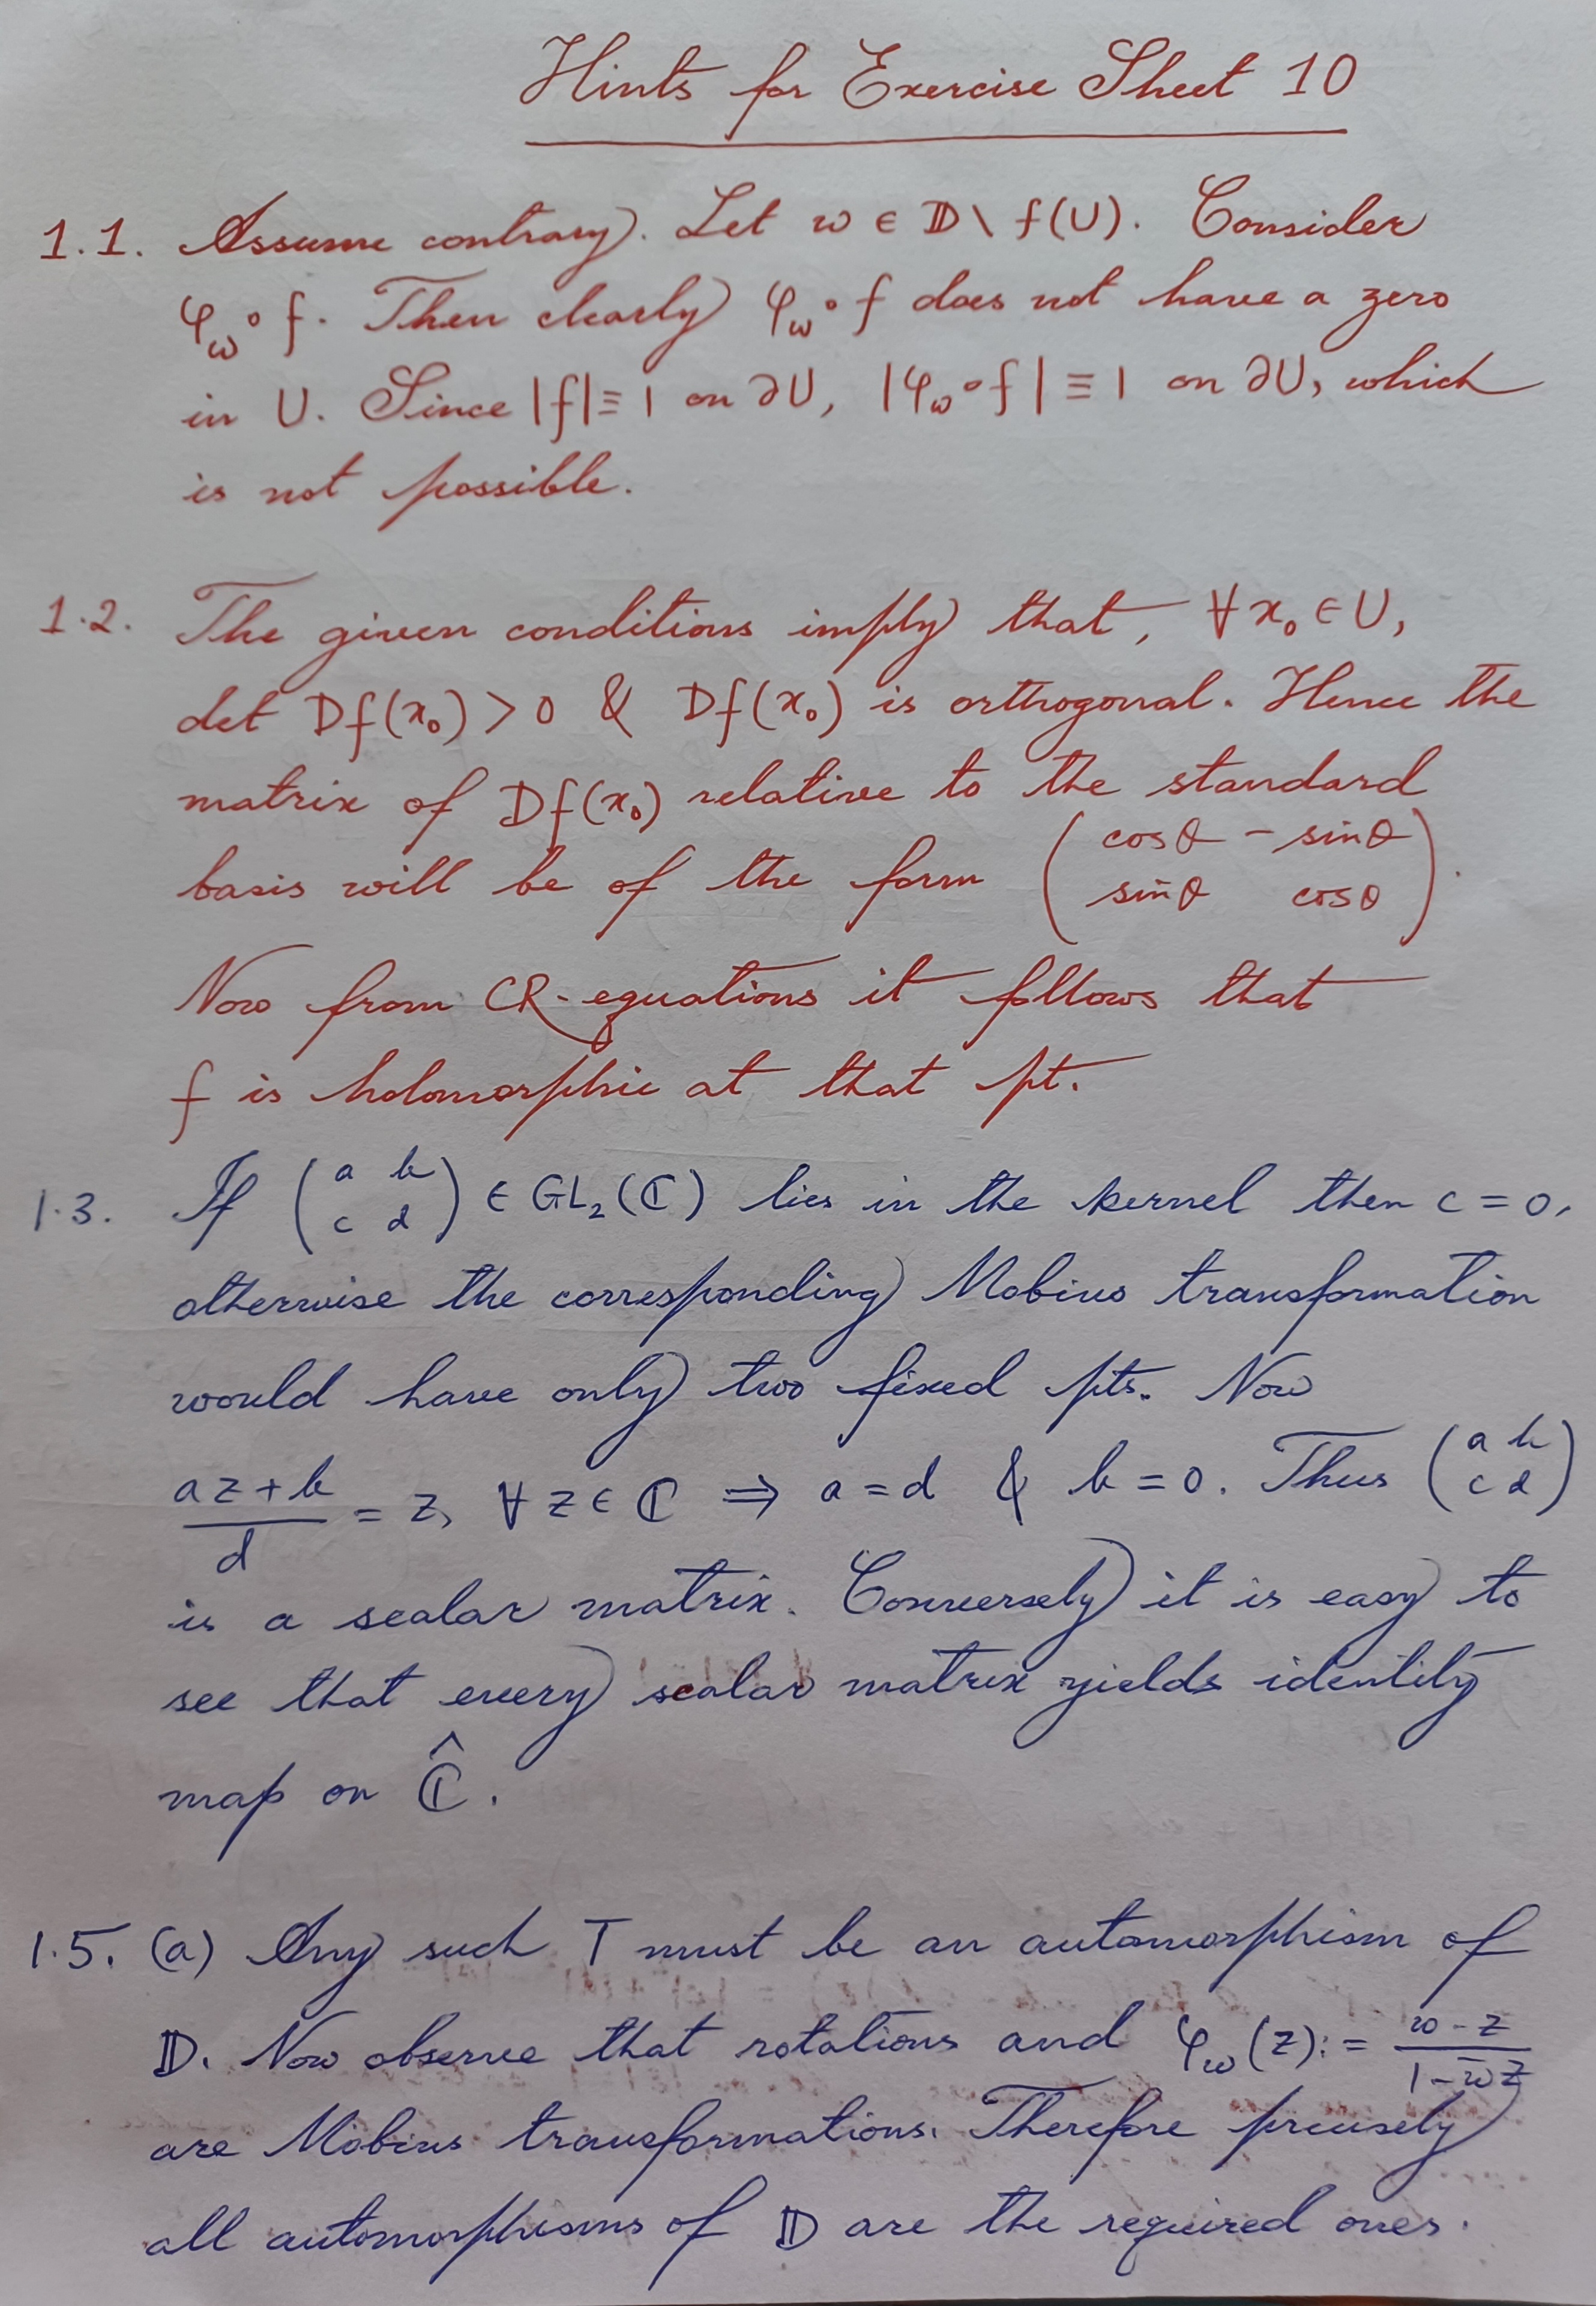 Hints for Exercise Sheet 10
1.1. Assume contrary. Let w ∈ 𝔻 \ f(U). Consider
φ_w ∘ f. Then clearly φ_w ∘ f does not have a zero
in U. Since |f| ≡ 1 on ∂U, |φ_w ∘ f| ≡ 1 on ∂U, which
is not possible.
1.2. The given conditions imply that, ∀ x₀ ∈ U,
det Df(x₀) > 0 & Df(x₀) is orthogonal. Hence the
matrix of Df(x₀) relative to the standard
basis will be of the form ( cosθ − sinθ
sinθ cosθ ).
Now from CR-equations it follows that
f is holomorphic at that pt.
1.3. If ( a b
c d ) ∈ GL₂(ℂ) lies in the kernel then c = 0,
otherwise the corresponding Mobius transformation
would have only two fixed pts. Now
(az + b)/d = z, ∀ z ∈ ℂ ⇒ a = d & b = 0. Thus ( a b
c d )
is a scalar matrix. Conversely it is easy to
see that every scalar matrix yields identity
map on ℂ̂.
1.5. (a) Any such T must be an automorphism of
𝔻. Now observe that rotations and φ_w(z) := (w − z)/(1 − w̄z)
are Möbius transformations. Therefore precisely
all automorphisms of 𝔻 are the required ones.